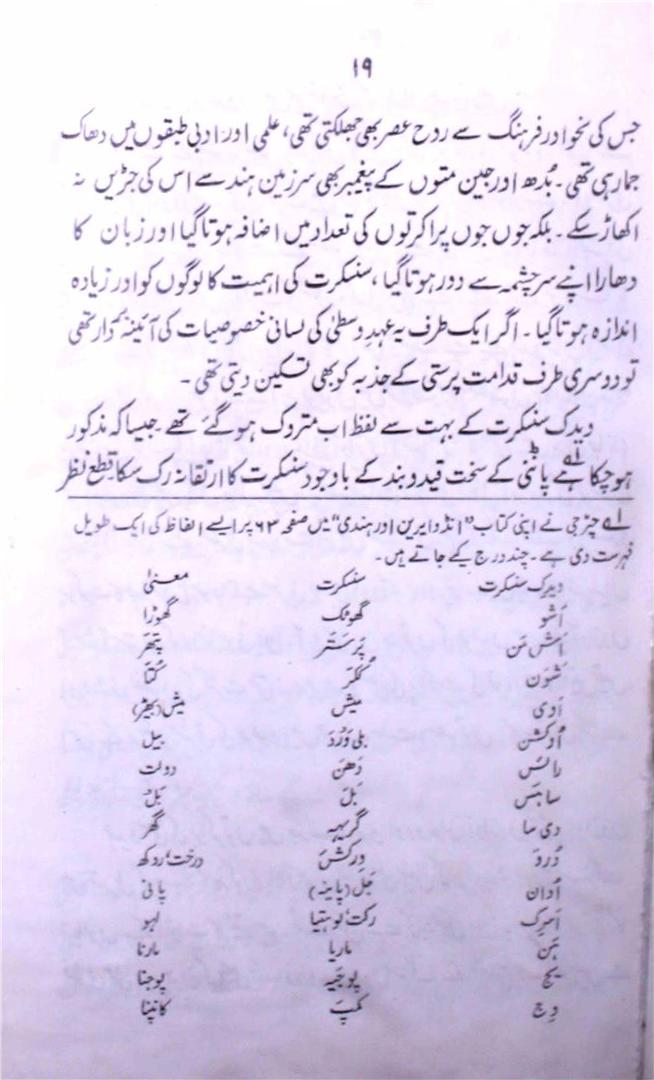 ۱۹
جس کی نحو اور فرہنگ سے روح عصر بھی جھلکتی تھی، علمی اور ادبی طبقوں میں دھاک
جما رہی تھی۔ بُدھ اور جین متوں کے پیغمبر بھی سرزمین ہند سے اس کی جڑیں نہ
اکھاڑ سکے۔ بلکہ جوں جوں پراکرتوں کی تعداد میں اضافہ ہوتا گیا اور زبان کا
دھارا اپنے سرچشمہ سے دور ہوتا گیا، سنسکرت کی اہمیت کا لوگوں کو اور زیادہ
اندازہ ہوتا گیا۔ اگر ایک طرف یہ عہدِ وسطیٰ کی لسانی خصوصیات کی آئینہ دار تھی
تو دوسری طرف قدامت پرستی کے جذبہ کو بھی تسکین دیتی تھی۔
ویدک سنسکرت کے بہت سے لفظ اب متروک ہو گئے تھے۔ جیسا کہ مذکور
ہو چکا ہے پاننی کے سخت قید و بند کے باوجود سنسکرت کا ارتقا نہ رک سکا۔ قطع نظر
لے چٹرجی نے اپنی کتاب "انڈو ایرین اور ہندی" میں صفحہ ۶۳ پر ایسے الفاظ کی ایک طویل
فہرست دی ہے۔ چند درج کیے جاتے ہیں۔
ویدک سنسکرت سنسکرت معنیٰ
اَشو گھوٹک گھوڑا
اشمن پرستر پتھر
شون ککُر کتا
اَوی میش میش (بھیڑ)
اُوکشن بلی وَرْد بیل
رائس دَھن دولت
ساہس بَل بَل
دی سا گرہہ گھر
دُرو ورکش درخت، روکھ
اُدان جل (پانیہ) پانی
اَسرک رکت، لوہتیا لہو
ہَن ماریا مارنا
یج پوجیہ پوجنا
وِج کمپ کانپنا